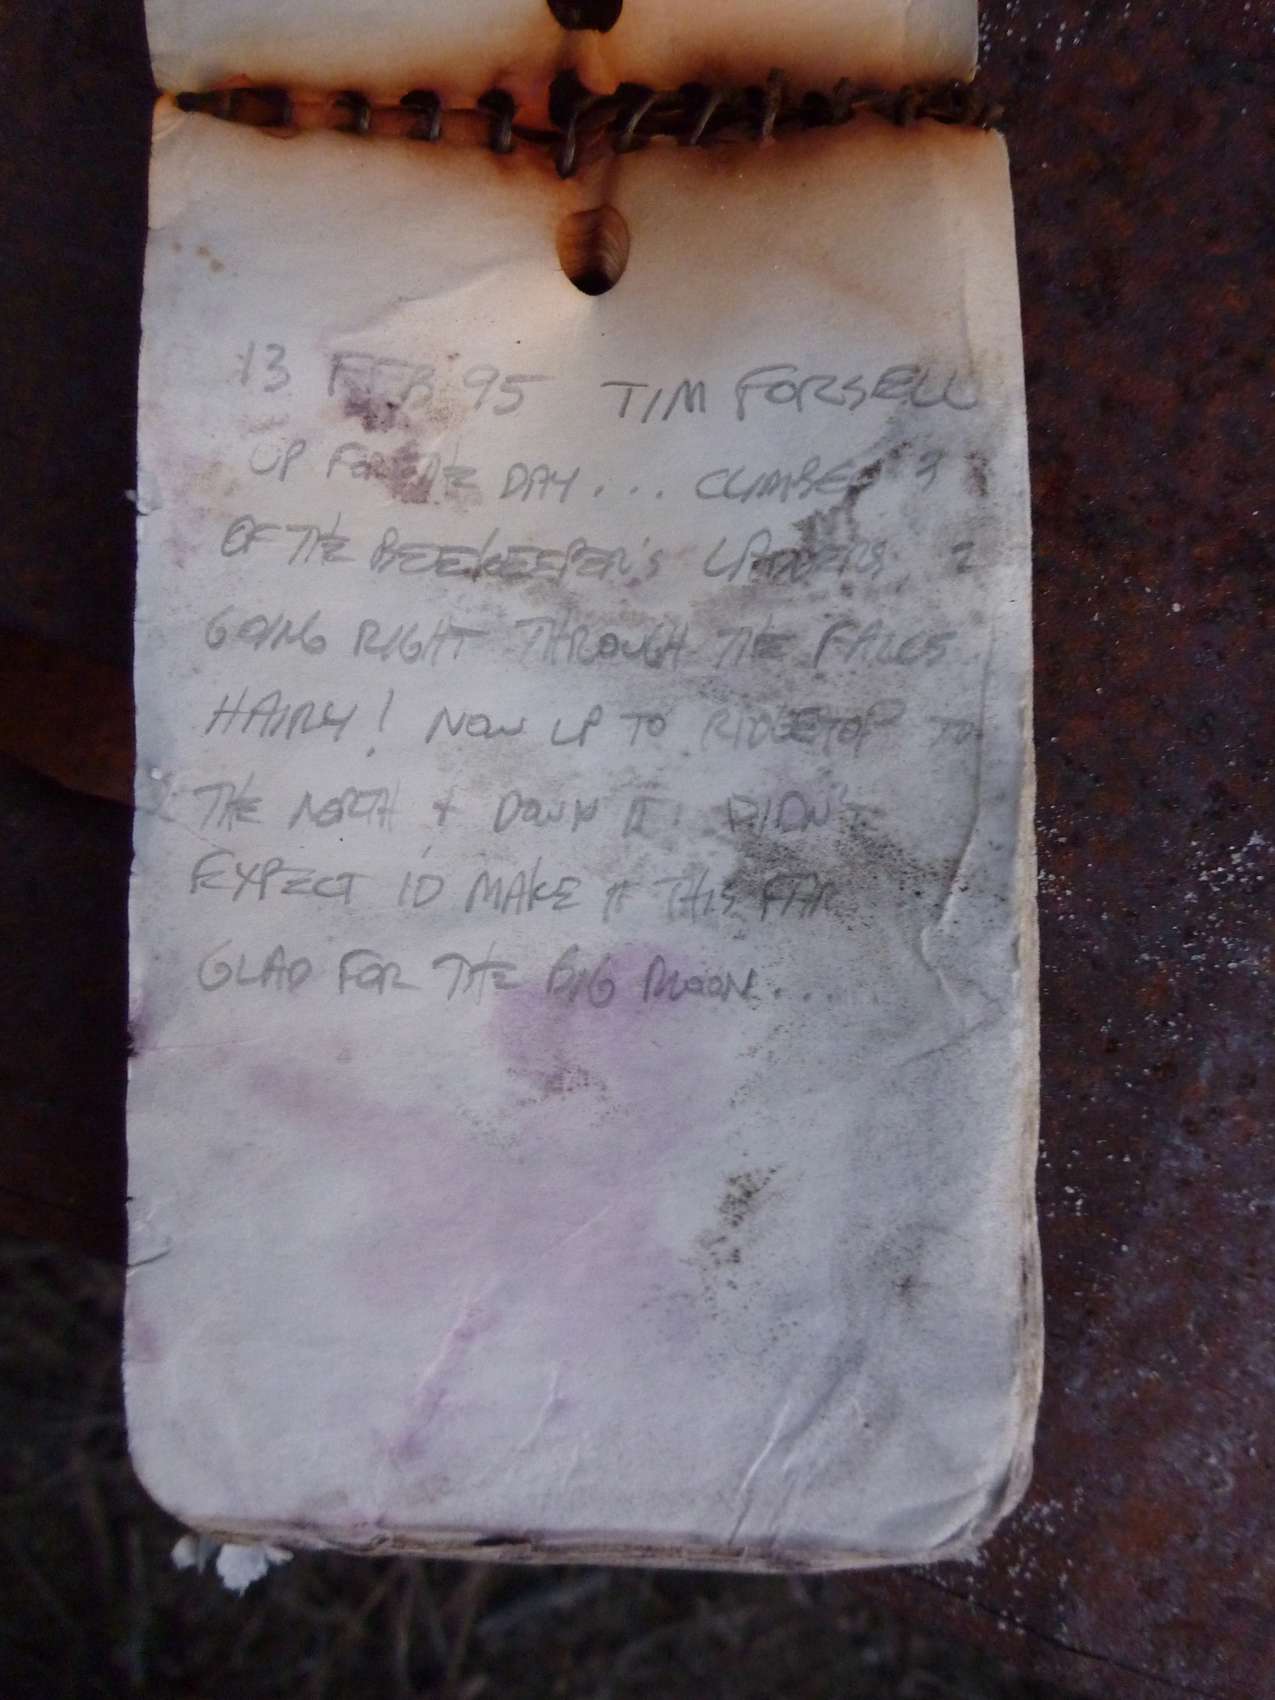 13 FEB 95 TIM FORSELL
UP FOR THE DAY... CLIMBED 3
OF THE BEEKEEPER'S LADDERS, 2
GOING RIGHT THROUGH THE FALLS
HAIRY! NOW UP TO RIDGETOP TO
THE NORTH + DOWN IT. DIDN'T
EXPECT I'D MAKE IT THIS FAR
GLAD FOR THE BIG MOON...